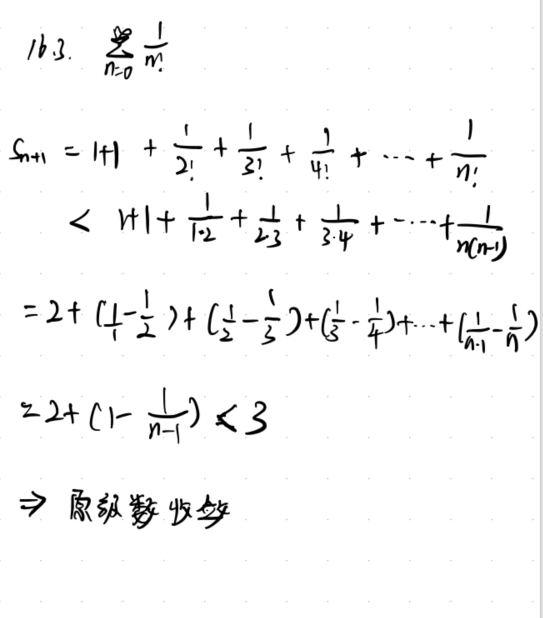 16.3. $\sum_{n=0}^{\infty} \frac{1}{n!}$
$S_{n+1} = 1+1 + \frac{1}{2!} + \frac{1}{3!} + \frac{1}{4!} + \cdots + \frac{1}{n!}$
$< 1+1+ \frac{1}{1 \cdot 2} + \frac{1}{2 \cdot 3} + \frac{1}{3 \cdot 4} + \cdots + \frac{1}{n(n-1)}$
$= 2 + (\frac{1}{1} - \frac{1}{2}) + (\frac{1}{2} - \frac{1}{3}) + (\frac{1}{3} - \frac{1}{4}) + \cdots + (\frac{1}{n-1} - \frac{1}{n})$
$= 2 + (1 - \frac{1}{n-1}) < 3$
⇒ 原级数收敛